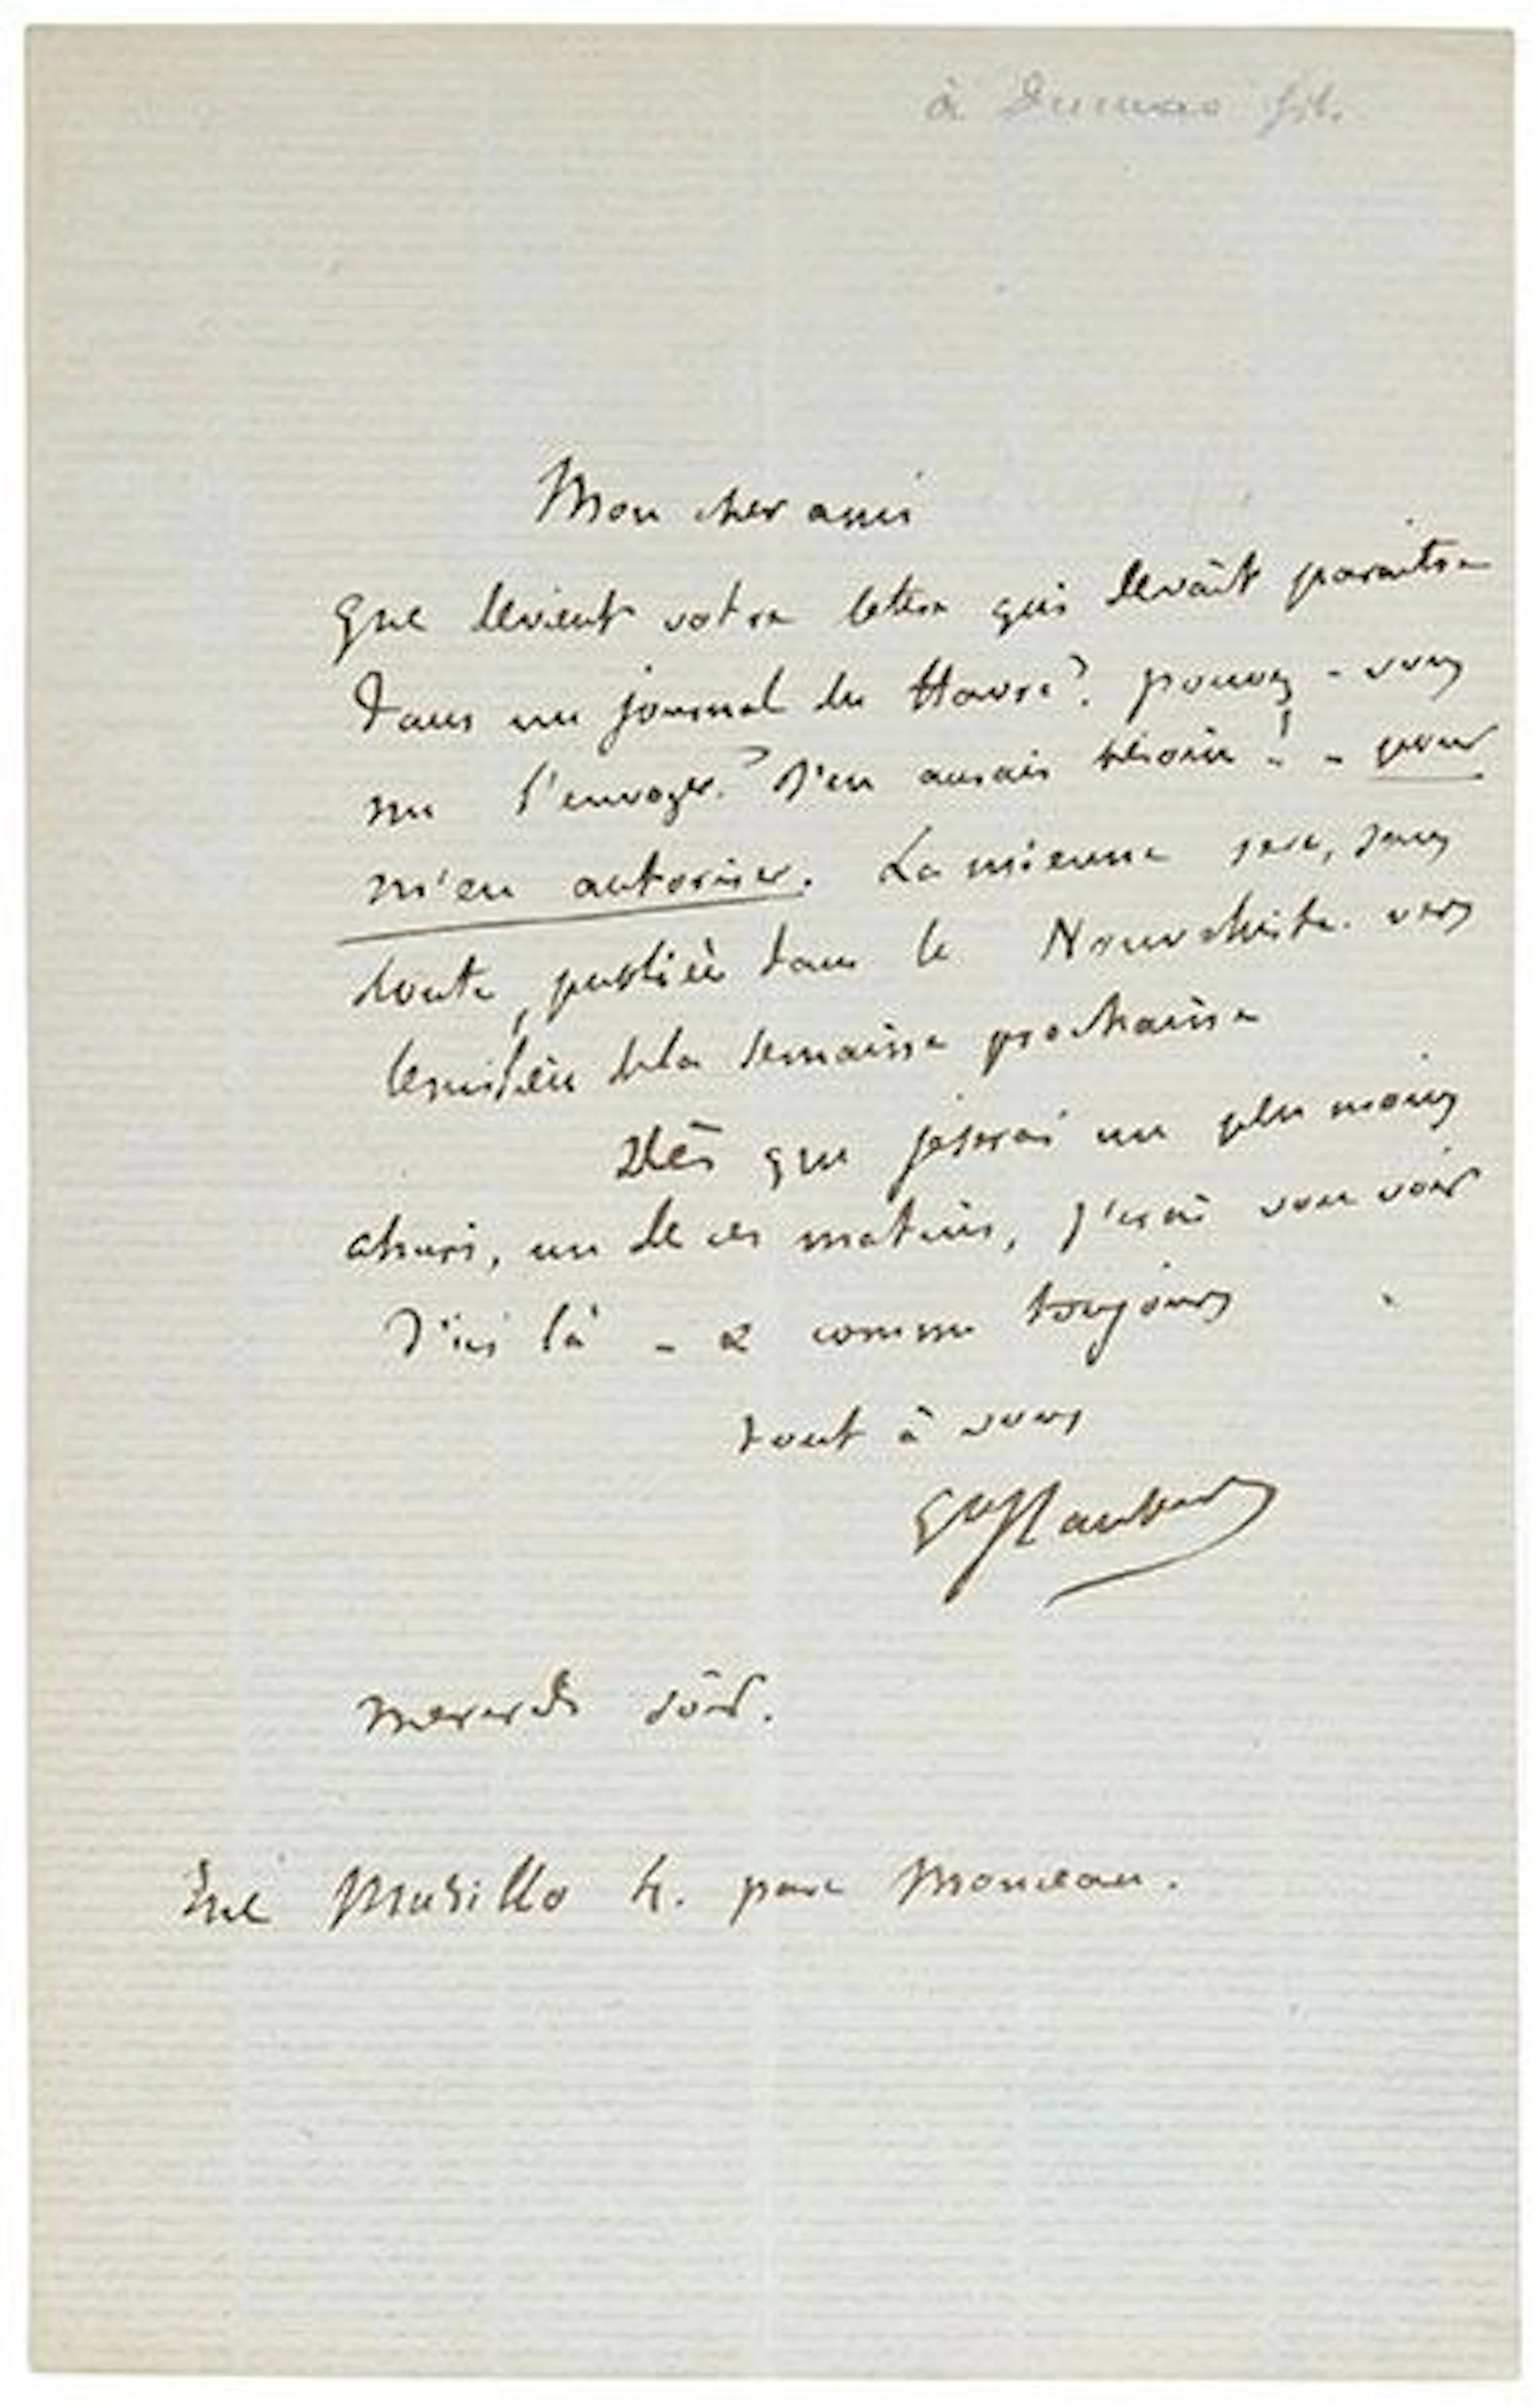 à Dumas fils.
Mon cher ami
Que devient votre lettre qui devait paraître
dans un journal du Havre? pouvez-vous
me l'envoyer? J'en aurais besoin! - pour
m'en autoriser. La mienne sera, sans
doute, publiée dans le Nouvelliste. vers
le milieu de la semaine prochaine
Dès que je serai un peu moins
ahuri, un de ces matins, j'irai vous voir
D'ici là - & comme toujours
tout à vous
GVFlaubert
mercredi soir.
rue Murillo 4. parc Monceau.